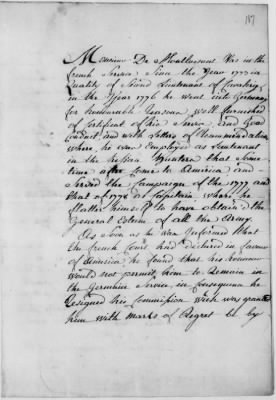 187
Monsieur De Moallusant Was in the
french Service Since the Year 1773 in
Quality of Second Lieutenant of Cavalry
in the Year 1776 he went into Germany
for Honourable Reasons Well furnished
of Certificat of his Service and Good
Conduct, and with Letters of Recommendation
Where he was Employed as Lieutenant
in the hessian that Some
time after Come to America and
Served the Campaign of the 1777 and
that of 1778 as Captain where he
flatter himself to have obtain the
General Esteem of all the Army.
As Soon as he Was Informed What
the french Court had declared in favour
of America he found that his honnour
Would not permit him to Remain in
the Germain Service in Consequence he
Resigned his Commission Wich was granted
him with Marks of Regret by